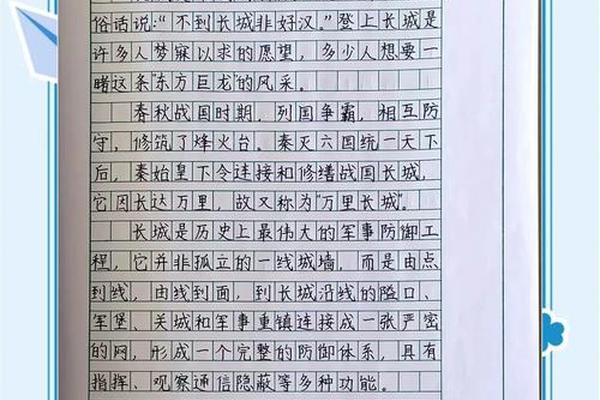 俗话说：“不到长城非好汉。”登上长城是
许多人梦寐以求的愿望，多少人想要一
睹这条“东方巨龙”的风采。
春秋战国时期，列国争霸，相互防
守，修筑了烽火台。秦灭六国统一天下
后，秦始皇下令连接和修缮战国长城，
它因长达万里，故又称为“万里长城”。
长城是历史上最伟大的军事防御工
程，它并非孤立的一线城墙，而是由点
到线，由线到面，到长城沿线的隘口、
军堡、关城和军事重镇连接成一张严密
的网，形成一个完整的防御体系，具有
指挥、观察通信隐蔽等多种功能。